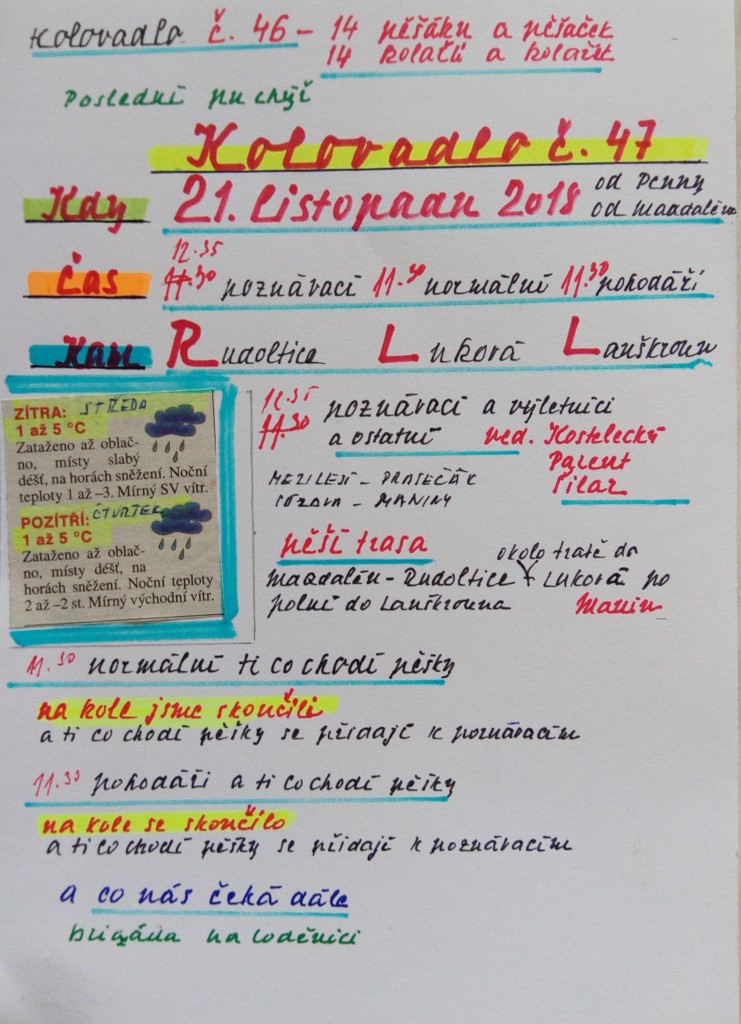 Kolovadlo č. 46 - 14 pěšáků a pěšaček
14 kolařů a kolařek
Poslední puchýř
Kolovadlo č. 47
Kdy 21. listopadu 2018 od Penny
od Magdalén
12.35
Čas 11.30 poznávací 11.30 normální 11.30 pohodáři
Kam Rudoltice Luková Lanškroun
ZÍTRA: STŘEDA
1 až 5 °C
Zataženo až oblač-
no, místy slabý
déšť, na horách sněžení. Noční
teploty 1 až –3. Mírný SV vítr.
POZÍTŘÍ: ČTVRTEK
1 až 5 °C
Zataženo až oblač-
no, místy déšť, na
horách sněžení. Noční teploty
2 až –2 st. Mírný východní vítr.
12.35
11.30 poznávací a výletníci
a ostatní ved. Kostelecký
Parent
Pilar
MEZILESÍ - PRASEČÁK
SÁZAVA - MARINY
pěší trasa
okolo tratě do
Magdalén - Rudoltice Luková po
polní do Lanškrouna Marin
11.30 normální ti co chodí pěšky
na kole jsme skončili
a ti co chodí pěšky se přidají k poznávacím
11.30 pohodáři a ti co chodí pěšky
na kole se skončilo
a ti co chodí pěšky se přidají k poznávacím
a co nás čeká dále
brigáda na loděnici